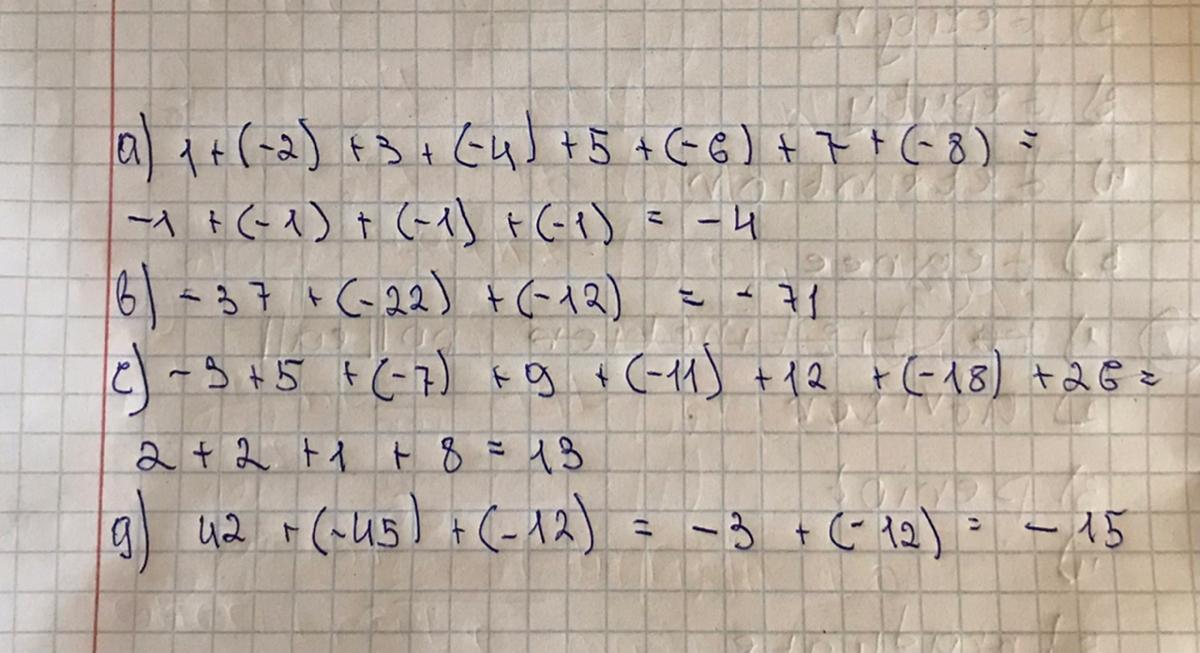 a) 1 + (-2) + 3 + (-4) + 5 + (-6) + 7 + (-8) =
-1 + (-1) + (-1) + (-1) = -4
b) -37 + (-22) + (-12) = -71
c) -3 + 5 + (-7) + 9 + (-11) + 12 + (-18) + 26 =
2 + 2 + 1 + 8 = 13
g) 42 + (-45) + (-12) = -3 + (-12) = -15